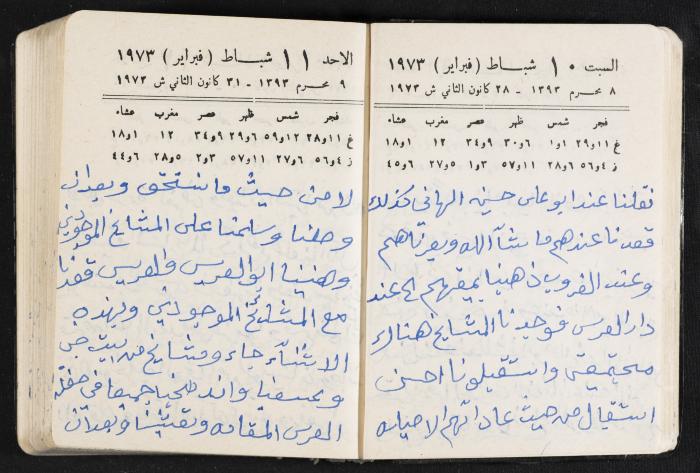 السبت ١٠ شباط (فبراير) ١٩٧٣
٨ محرم ١٣٩٣ - ٢٨ كانون الثاني ش ١٩٧٣
فجر شمس ظهر عصر مغرب عشاء
غ ١١و٢٩ ١و١ ٦و٣٠ ٩و٣٤ ١٢ ١و١٨
ز ٤و٥٦ ٦و٢٨ ١١و٥٧ ٣و١ ٥و٢٧ ٦و٤٥
نقلنا عند ابو علي حسين الهاني كذلك
قعدنا عندهم ما شآ الله وبعرناهم
وعند الغروب ذهبنا بميقهم الى عند
دار العرس فوجدنا المشايخ هناك
مجتمعين واستقبلونا احسن
استقبال من حيث عاداتهم الاصيله
الاحد ١١ شباط (فبراير) ١٩٧٣
٩ محرم ١٣٩٣ - ٣١ كانون الثاني ش ١٩٧٣
فجر شمس ظهر عصر مغرب عشاء
غ ١١و٢٨ ١٢و٥٩ ٦و٢٩ ٩و٣٤ ١٢ ١و١٨
ز ٤و٥٦ ٦و٢٧ ١١و٥٧ ٣و٢ ٥و٢٨ ٦و٤٤
لا من حيث ما نستحق وبعدان
وصلنا وسلمنا على المشايخ الموجودين
وهنينا ابو العريس والعريس قعدنا
مع المشائخ الموجودين وبهذه
الاثنآء جاء ومشايخ من بيت جن
جميعا في حفلة
العرس المقامه وبعدان